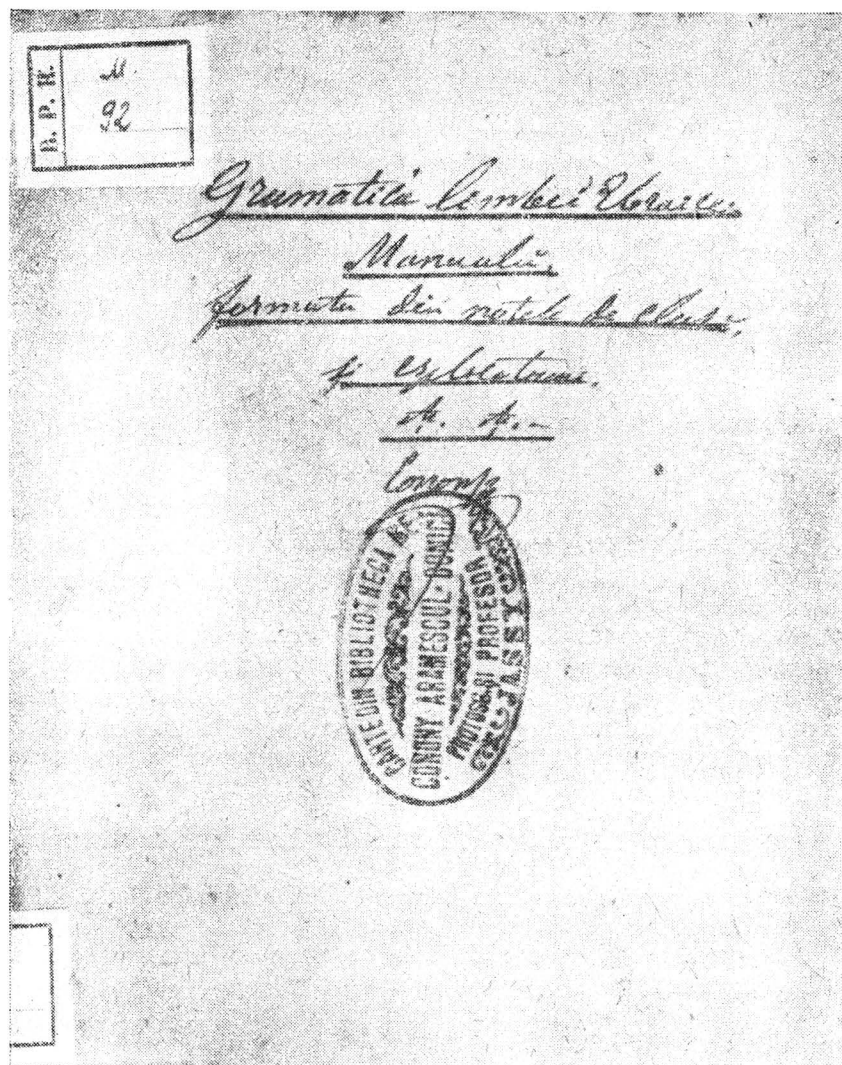 B. P. H.
M.
92
Gramatica limbei Ebraice.
Manualŭ,
formatu din notele de clasă,
și
Cononŭ
CARTE DIN BIBLIOTHECA
CONONY ARAMESCUL-DONICI
PROTOS. ȘI PROFESOR
JASSY